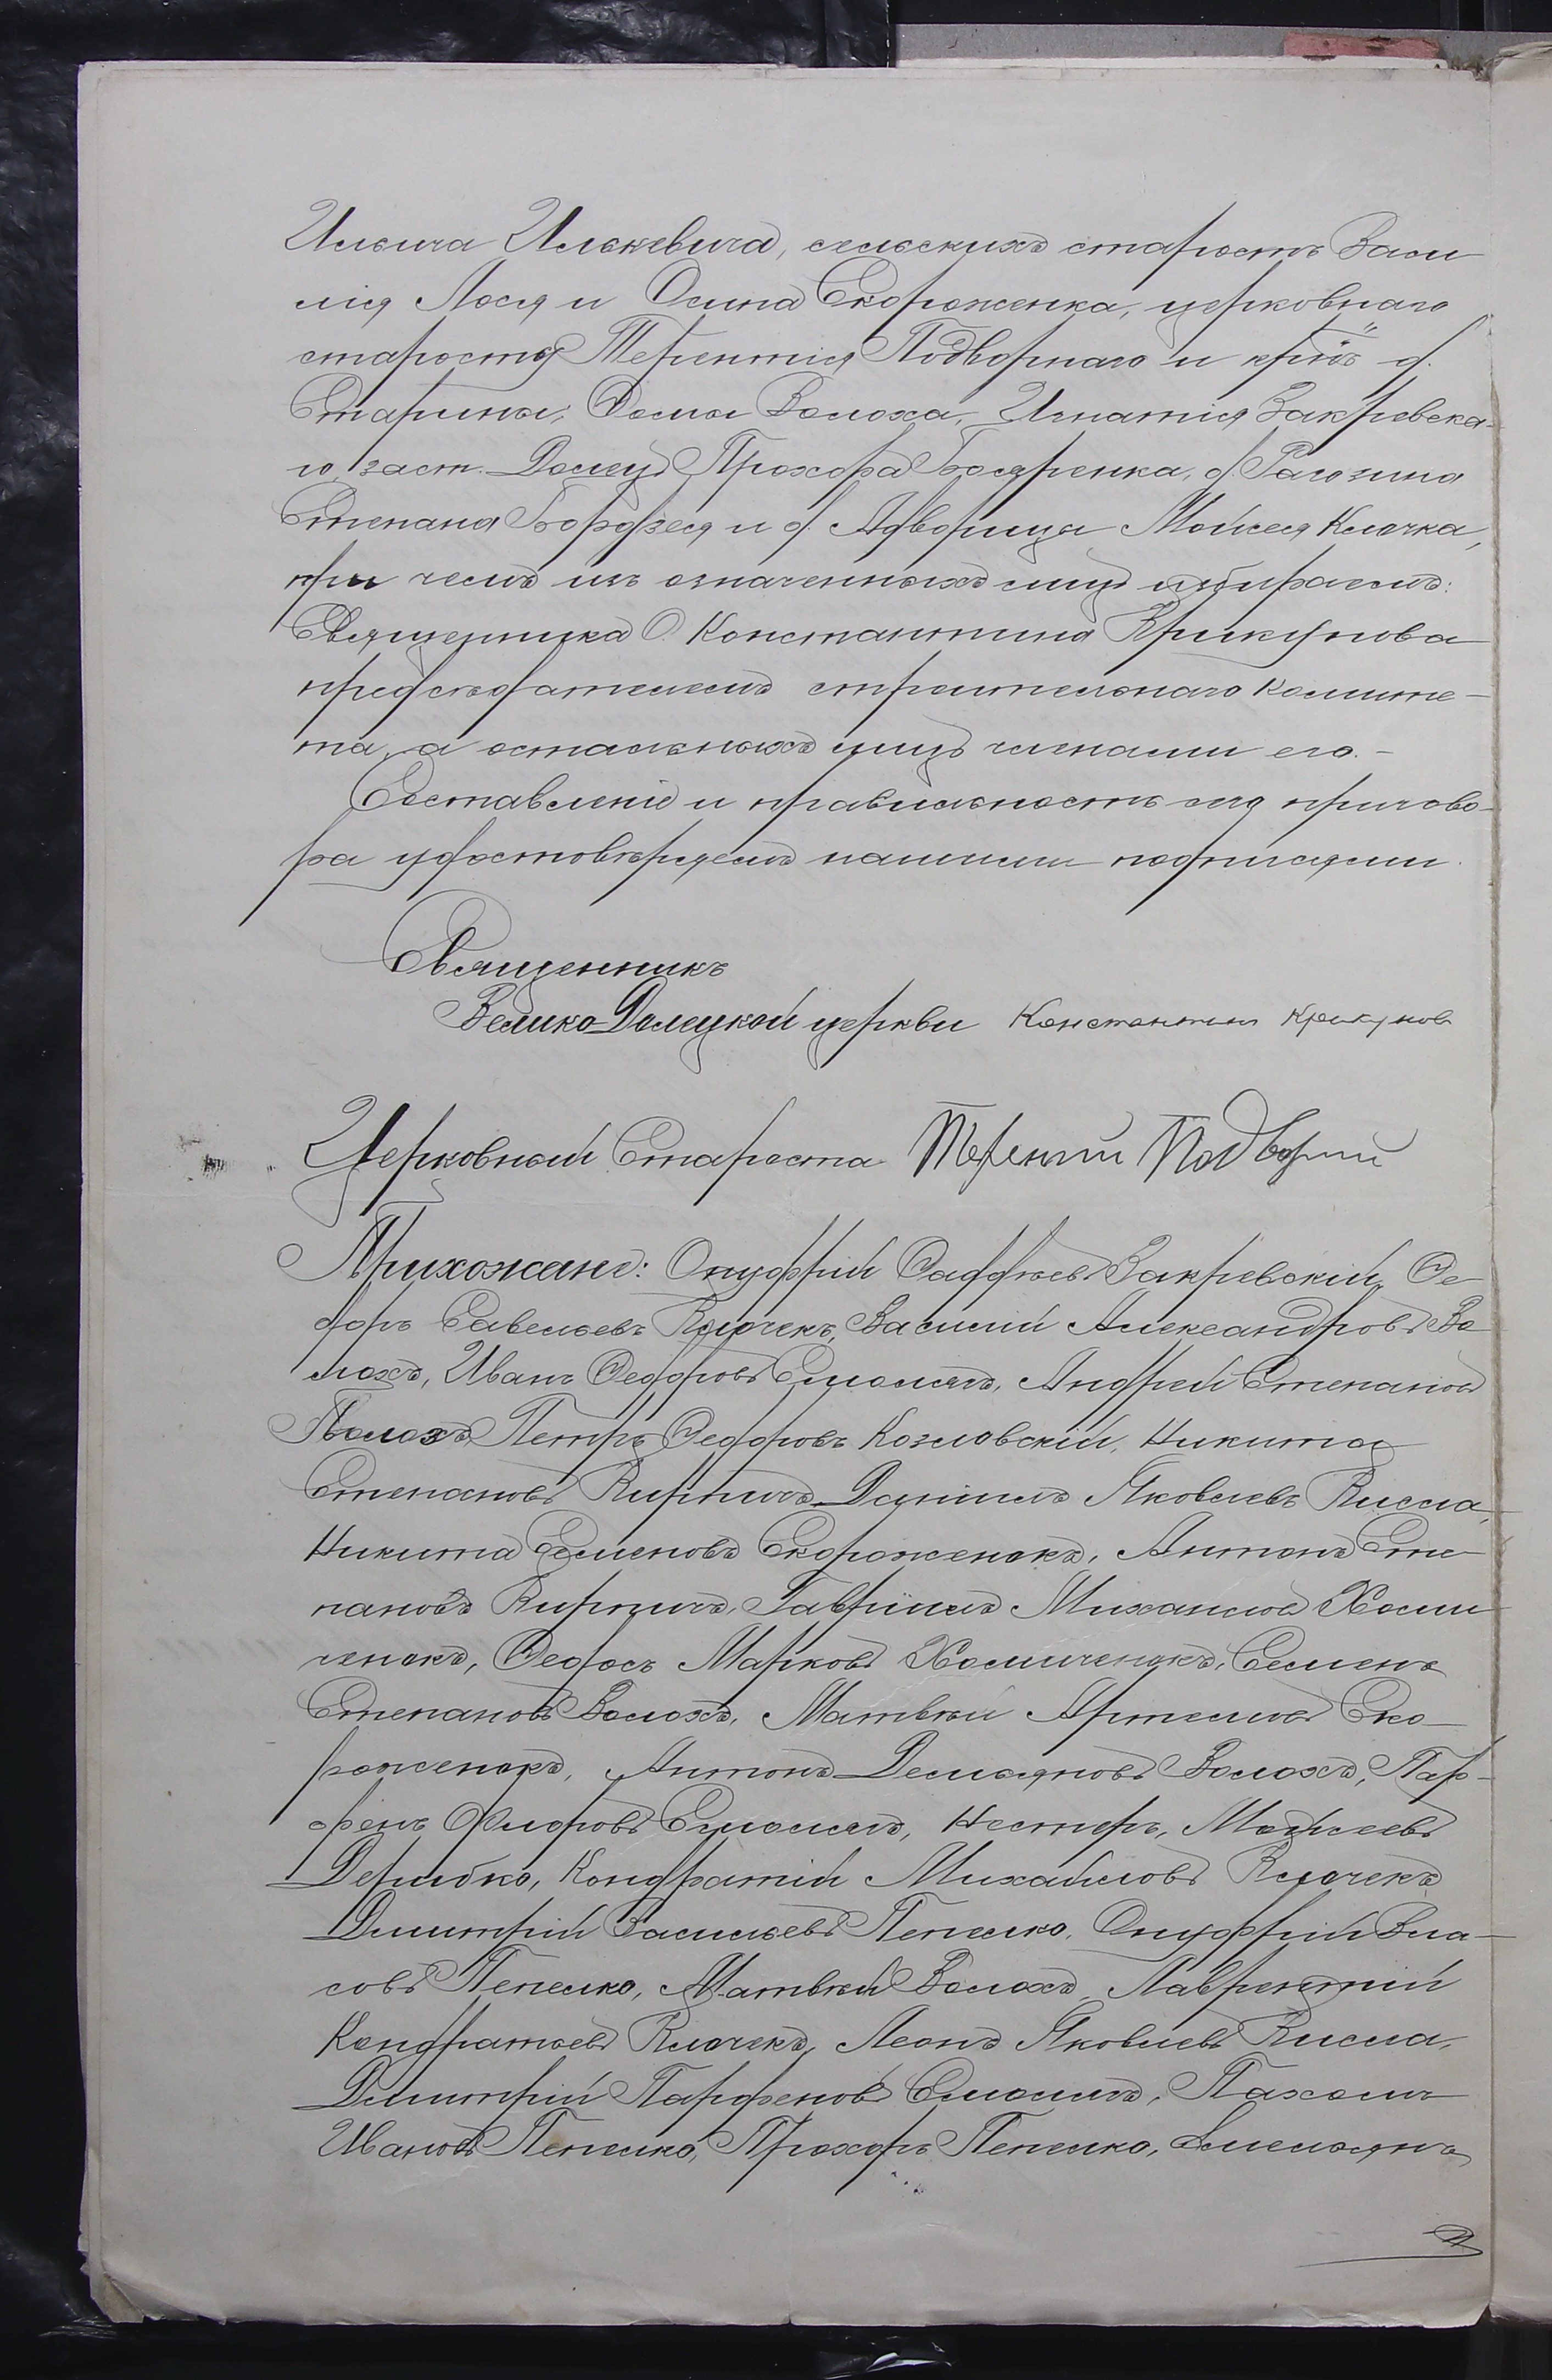 Ильича Илькевича, сельскихъ старостъ Васи
лія Лося и Осипа Скороженка, церковнаго
старосту Терентія Подворнаго и кр̈нъ д.
Старины: Ѳомы Волоха, Игнатія Закревска-
го, заст. Долецъ Прохора Бондаренка, д. Рагозина
Степана Бордзея и д. Адворица Мойсея Клочка,
при чемъ изъ означенныхъ лицъ избираемъ:
Священника О. Константина Крикунова
предсѣдателемъ строительнаго комите-
та, а остальныхъ лицъ членами его.-
Составленіе и правильность сего пригово-
ра удостовѣряемъ нашими подписями.
Священникъ
Велико-Долецкой церкви Константинъ Крикуновъ
Церковный Староста Терентий Подворный
Прихожане: Онуфрій Ѳаддѣевъ Закревскій, Ѳе-
доръ Савельевъ Клочекъ, Василій Александровъ Во
лохъ, Иванъ Ѳедоровъ Смоликъ, Андрей Степановъ
Полозъ, Петръ Ѳедоровъ Козловскій, Никита
Степановъ Кирпичъ, Даніилъ Яковлевъ Кисла,
Никита Семеновъ Скороженокъ, Антонъ Сте-
пановъ Кирпичъ, Гавріилъ Михайловъ Хоми
ченокъ, Ѳедосъ Марковъ Хомиченокъ, Семенъ
Степановъ Волохъ, Матвѣй Артемовъ Ско-
роженокъ, Антонъ Демьяновъ Волохъ, Пар-
фенъ Флоровъ Смоликъ, Нестеръ, Мойсеевъ
Дерибко, Кондратій Михайловъ Клочекъ
Димитрій Васильевъ Пепелко, Онуфрій Вла-
совъ Пепелко, Матвѣй Волохъ, Лаврентій
Кондратьевъ Клочекъ, Леонъ Яковлевъ Кисла,
Димитрій Парфеновъ Смоликъ, Пахомъ
Ивановъ Пепелко, Прохоръ Пепелко, Емельянъ